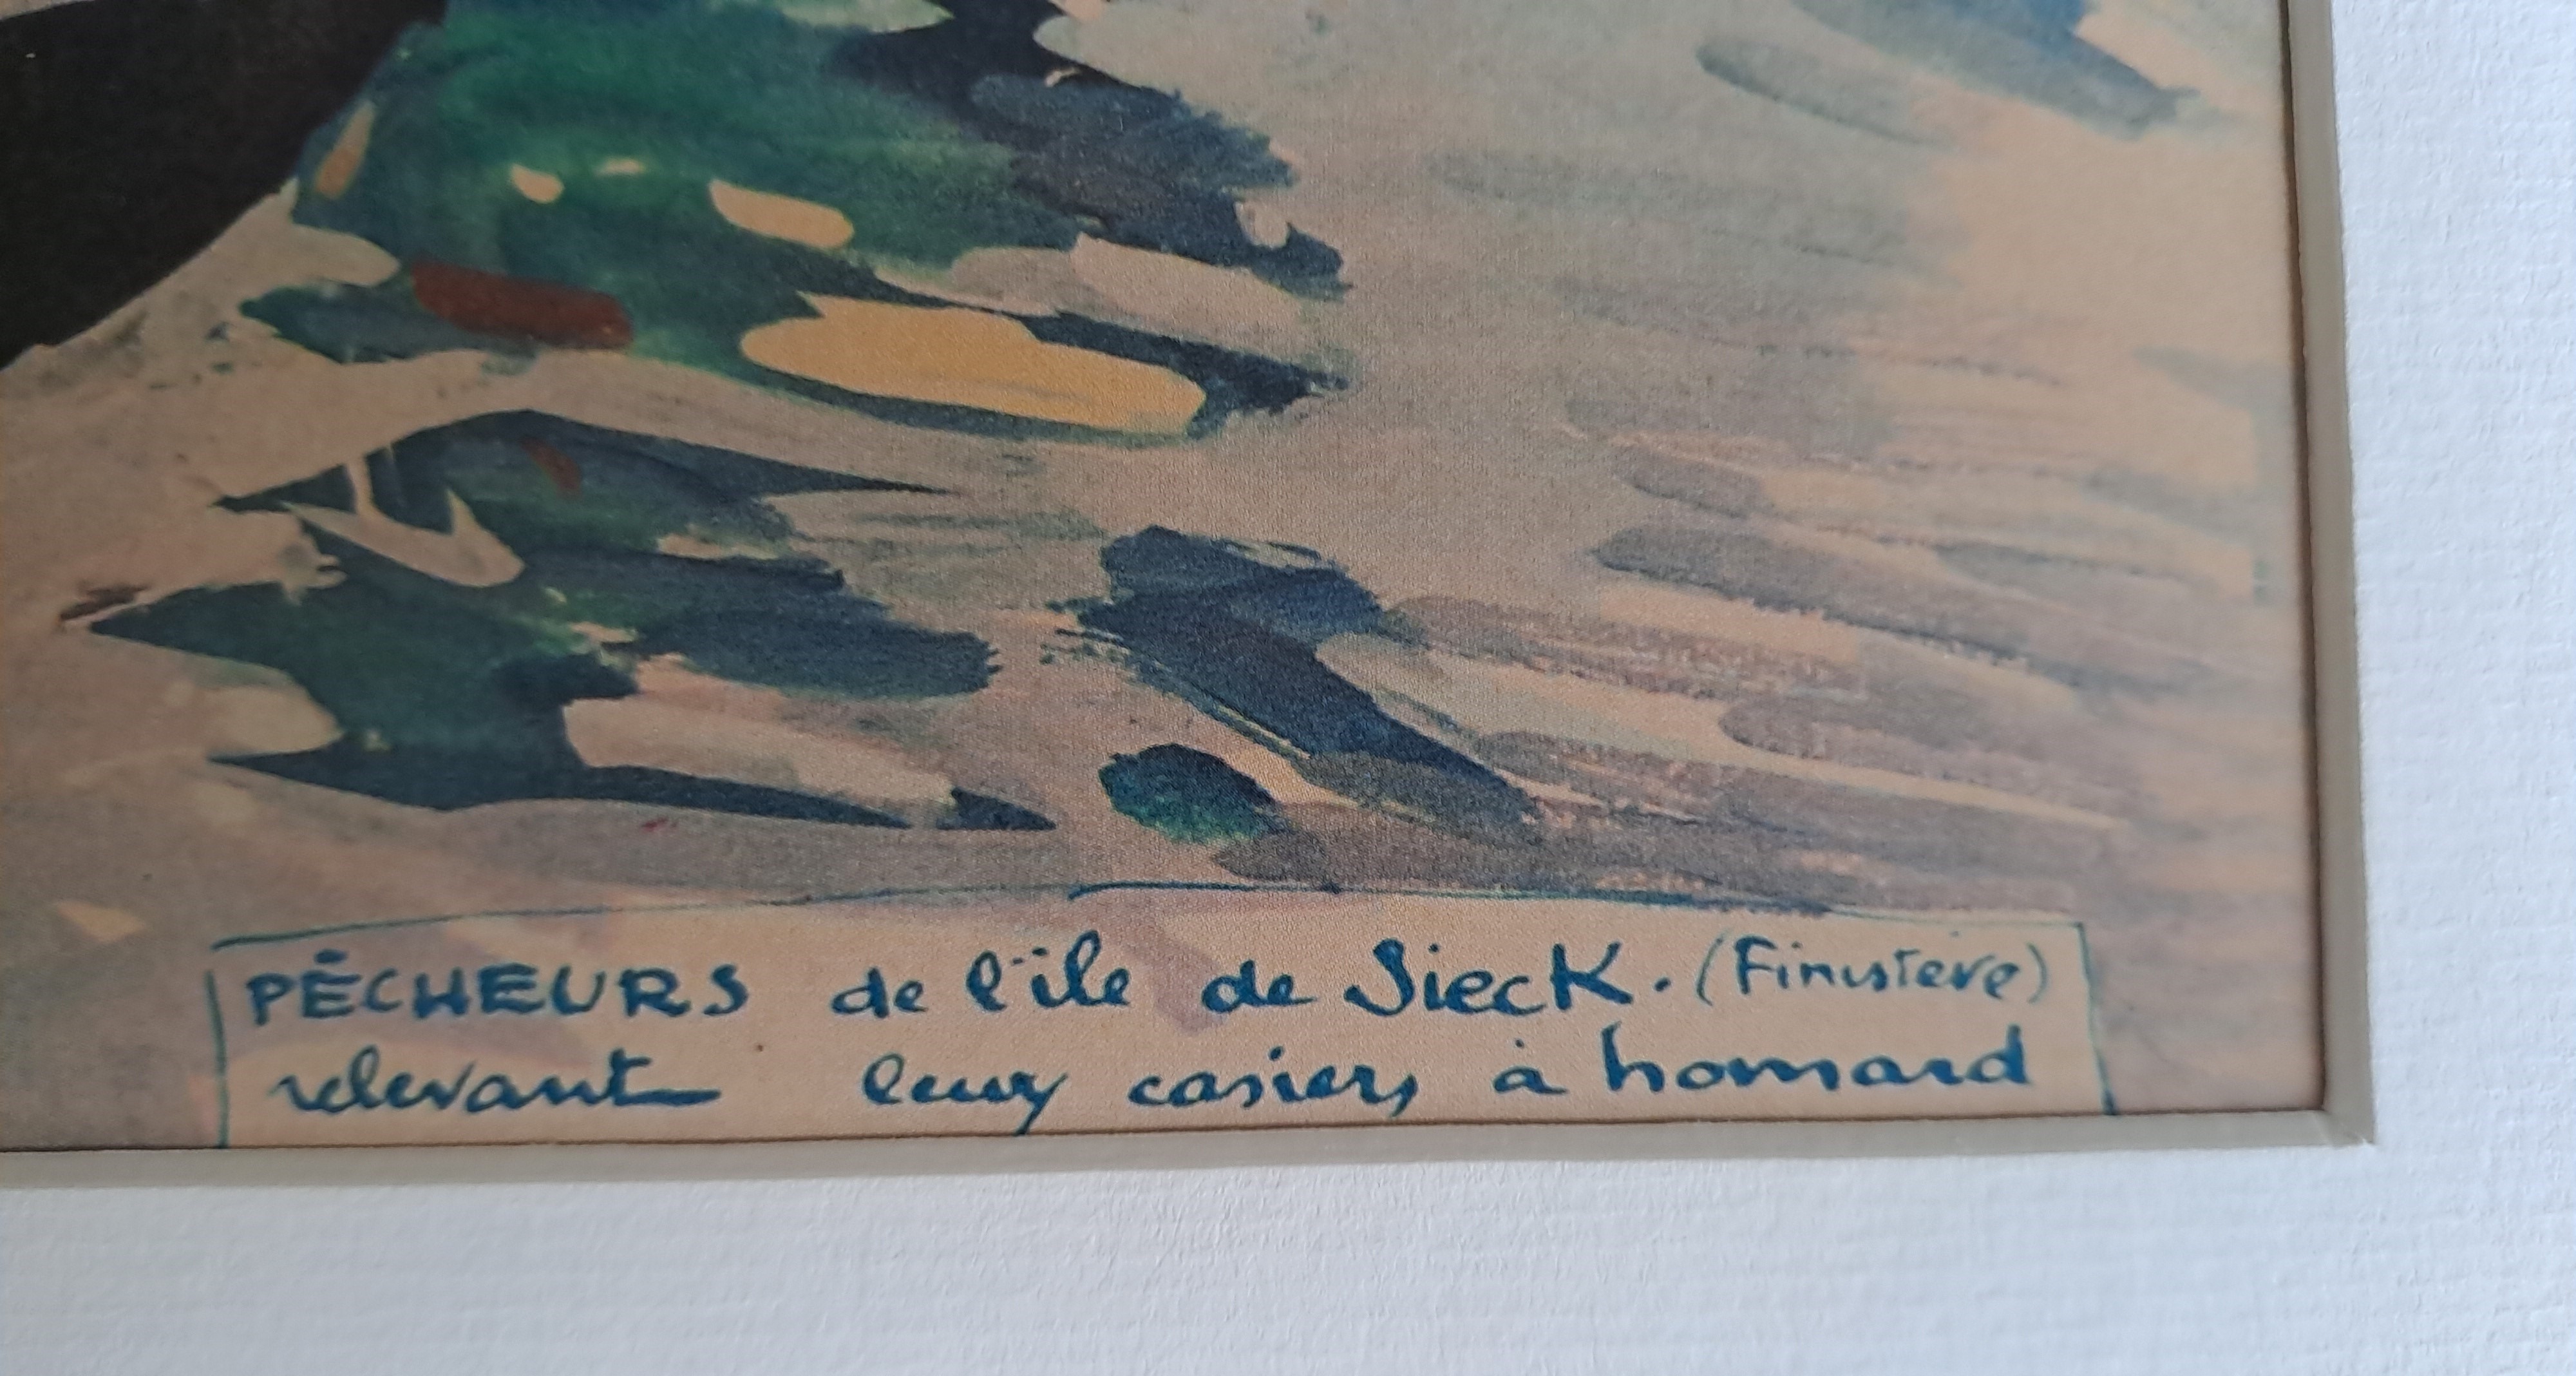 PÊCHEURS de l'île de Sieck. (Finistère)
relevant leurs casiers à homard